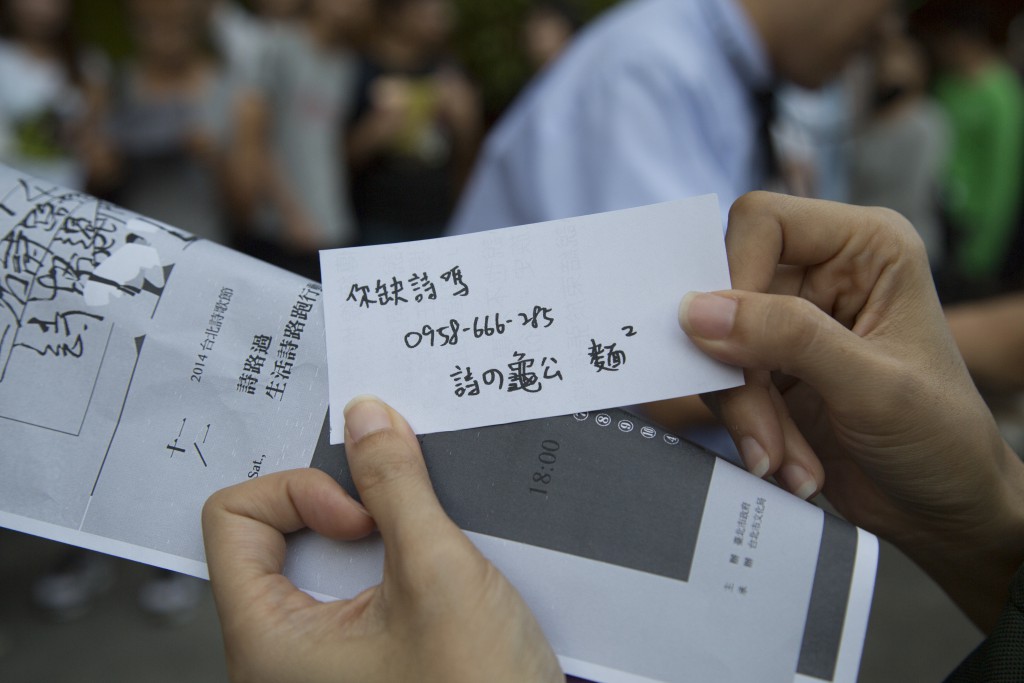 你缺詩嗎
0958-666-285
詩の龜公 麵²
2014 台北詩歌節
詩路過
生活詩路跑行
十一
Sat.,
18:00
⑧ ⑨ ⑩
主 辦 臺北市政府
承 辦 台北市文化局